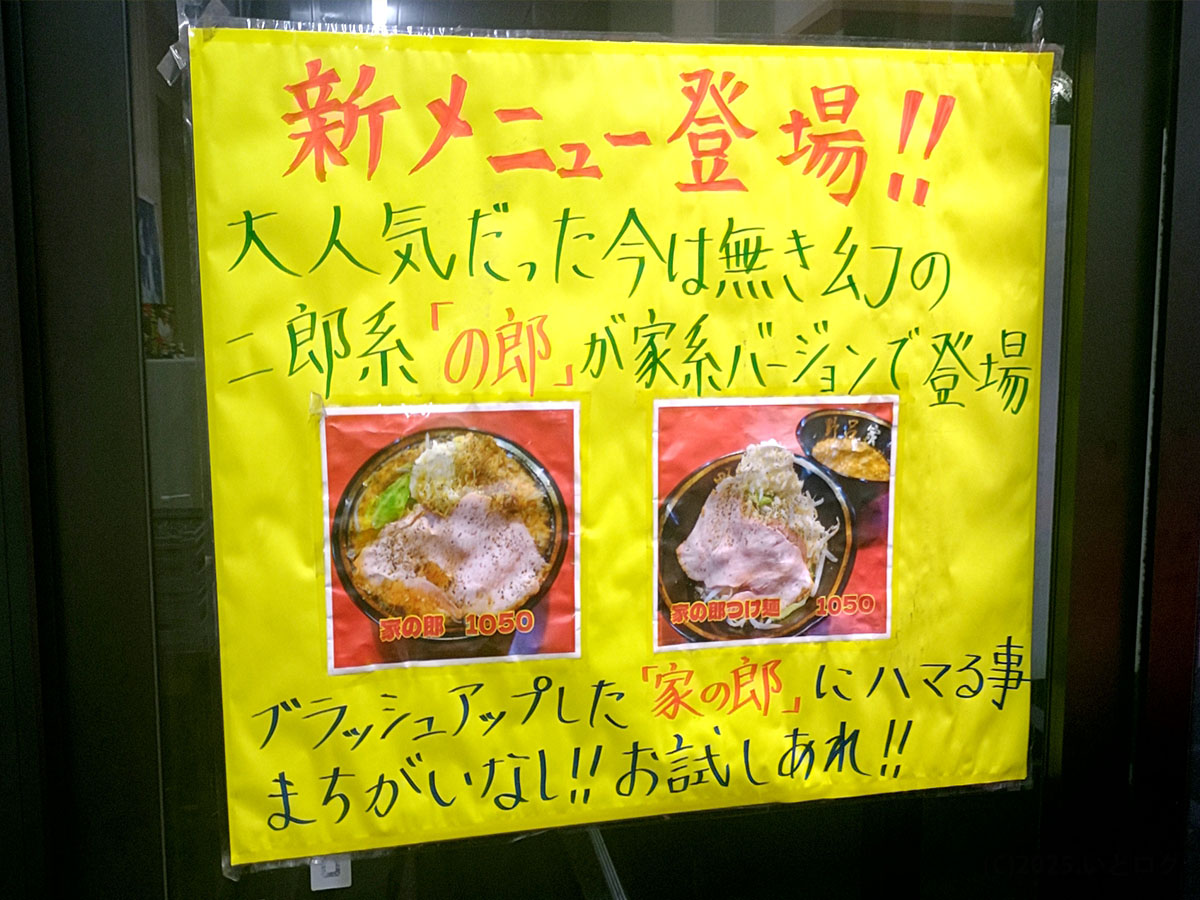 新メニュー登場!!
大人気だった今は無き幻の
二郎系「の郎」が家系バージョンで登場
家の郎 1050
家の郎つけ麺 1050
ブラッシュアップした「家の郎」にハマる事
まちがいなし!!お試しあれ!!